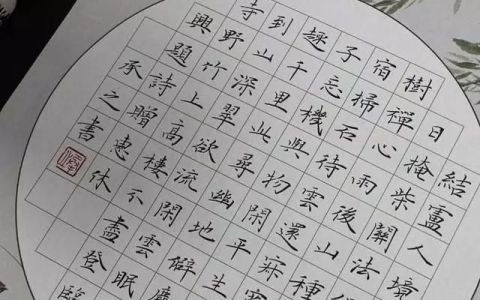 結盧人境
日掩柴關法
樹禪心雨後山種
宿掃石待雲還寂
子忘機與物閑平生
趣千里此尋幽地僻
到山深翠欲流閑雲眠
寺野竹上高樓不盡登
興題詩贈惠休
承之書